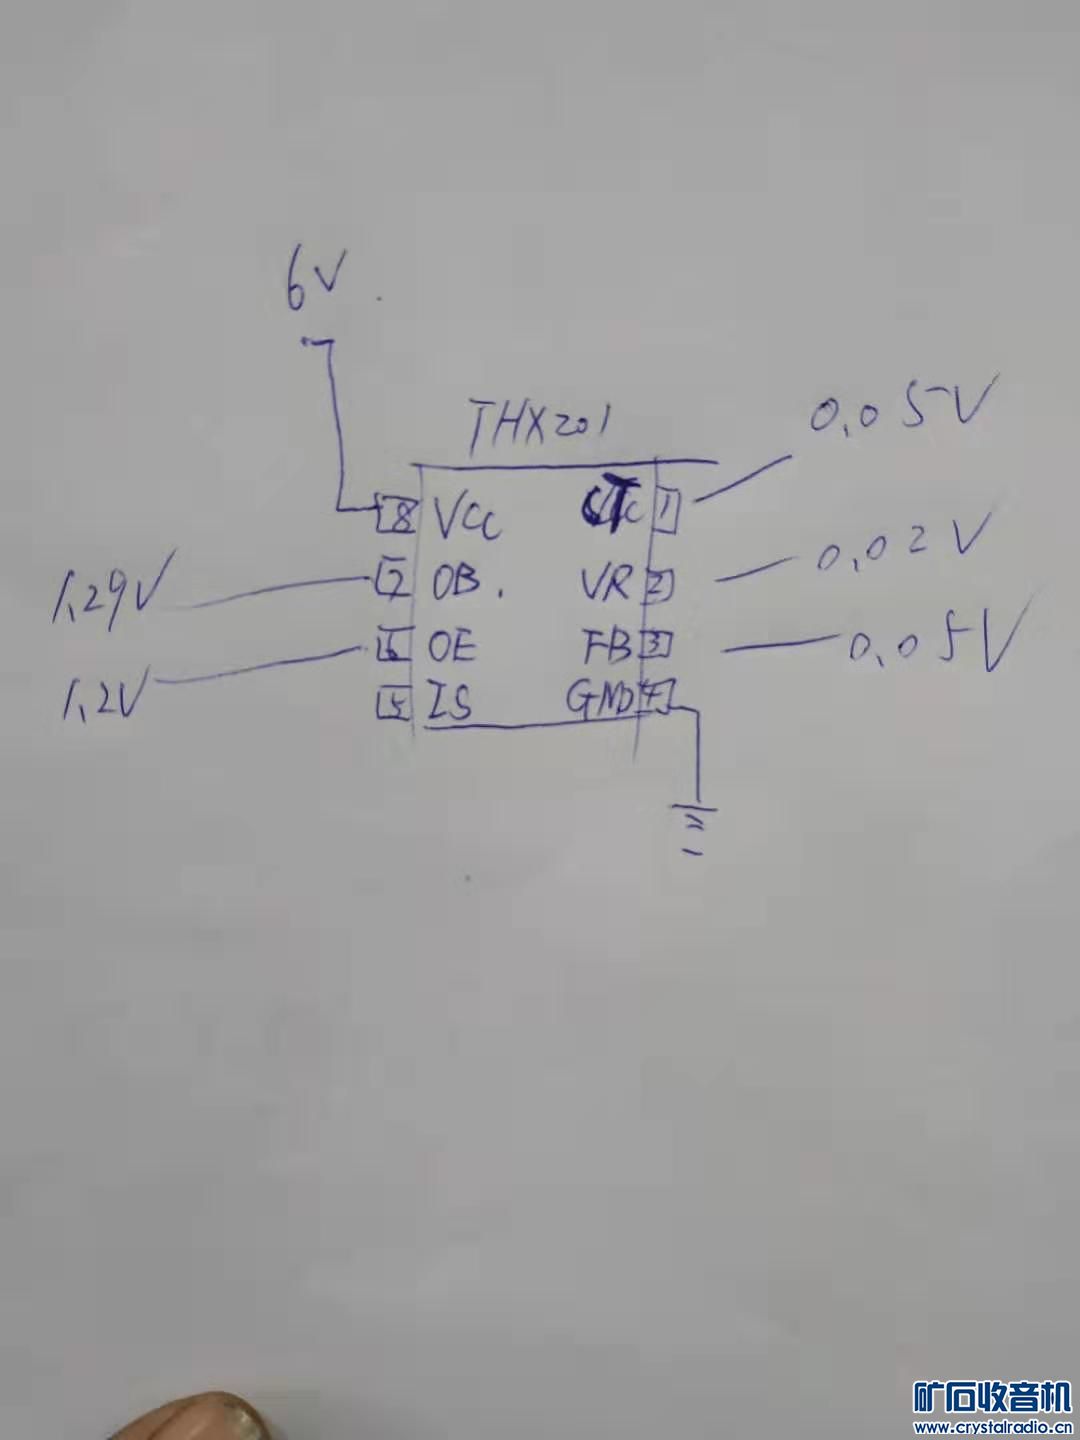 6V
THX201
0.05V
8 VCC CT 1
7 OB. VR 2
0.02V
1.29V
6 OE FB 3
0.05V
1.2V
5 IS GND 4
矿石收音机
www.crystalradio.cn